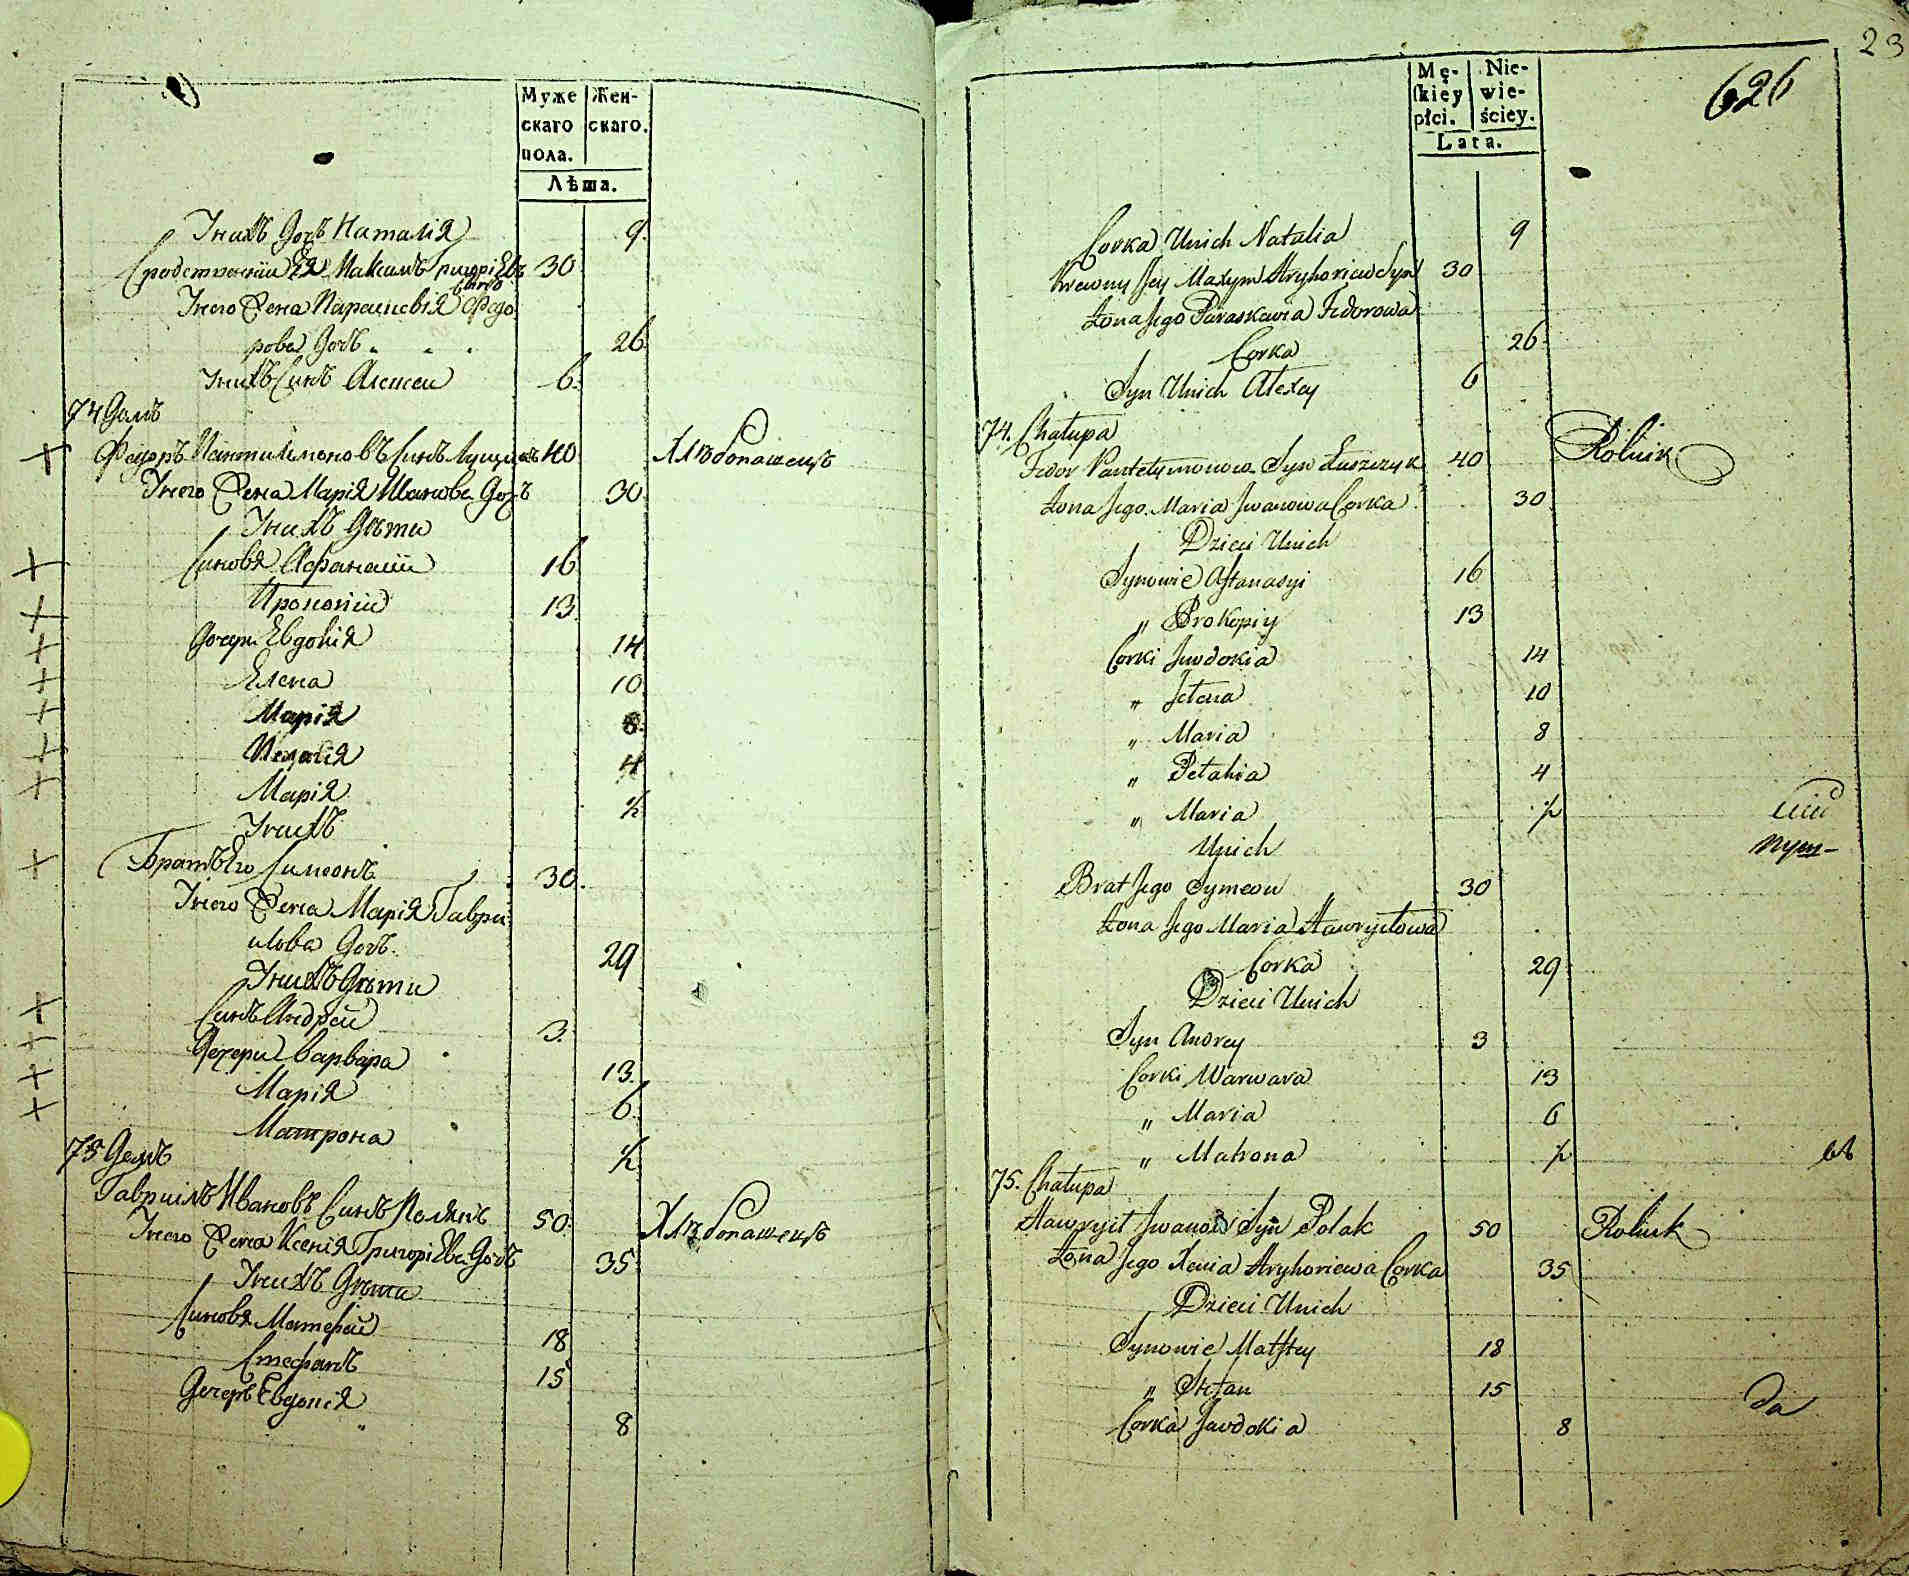 Муже Жен-
скаго скаго.
пола.
Лѣта.
Унихъ Дочь Наталія 9
Сродственни Ея Максимъ ригоріевъ 30
Синъ
Унего Жена Параскевія Федо
рова Дочь 26
Унихъ Синъ Алексеи 6
74 Домъ
Федоръ Пантилимоновъ Синъ 40 Хлѣбопашецъ
Унего Жена Марія Иванова Дочъ 30
Унихъ Дѣти
Синовя Афанасіи 16
Прокопіи 13
Дочери Евдокія 14
Елена 10
Марія 8
Пелагія 4
Марія ½
Унихъ
Братъ Его Симеонъ 30
Унего Жена Марія Гаври
илова Дочъ 29
Унихъ Дѣти
Синъ Андрей 3
Дочери Варвара 13
Марія 6
Матрона ½
75 Домъ
Гавриилъ Ивановъ Синъ Полякъ 50 Хлѣбопашецъ
Унего Жена Ксенія Григоріева Дочъ 35
Унихъ Дѣти
Синовя Матефей 18
Стефанъ 15
Дочеръ Евдокія 8
23
626
Mę- Nie-
skiey wie-
płci. ściey.
Lata.
Corka Unich Natalia 9
Krewny Jey Maxym Hryhoriew Syn 30
Żona Jego Paraskewia Fedorowa
Corka 26
Syn Unich Alexey 6
74. Chałupa
Fedor Pantelymonow Syn Łuszczyk 40 Rolnik
Żona Jego Maria Iwanowa Corka 30
Dzieci Unich
Synowie Afanasyi 16
„ Prokopiy 13
Corki Jewdokia 14
„ Jelena 10
„ Maria 8
„ Pelahia 4
„ Maria ½
Unich
Brat Jego Symeon 30
Żona Jego Maria Hawryłowa
Corka 29
Dzieci Unich
Syn Andrey 3
Corki Warwara 13
„ Maria 6
„ Matrona ½
75. Chałupa
Hawryił Iwanow Syn Polak 50 Rolnik
Żona Jego Xenia Hryhoriewa Corka 35
Dzieci Unich
Synowie Matftey 18
„ Stefan 15
Corka Jewdokia 8
да